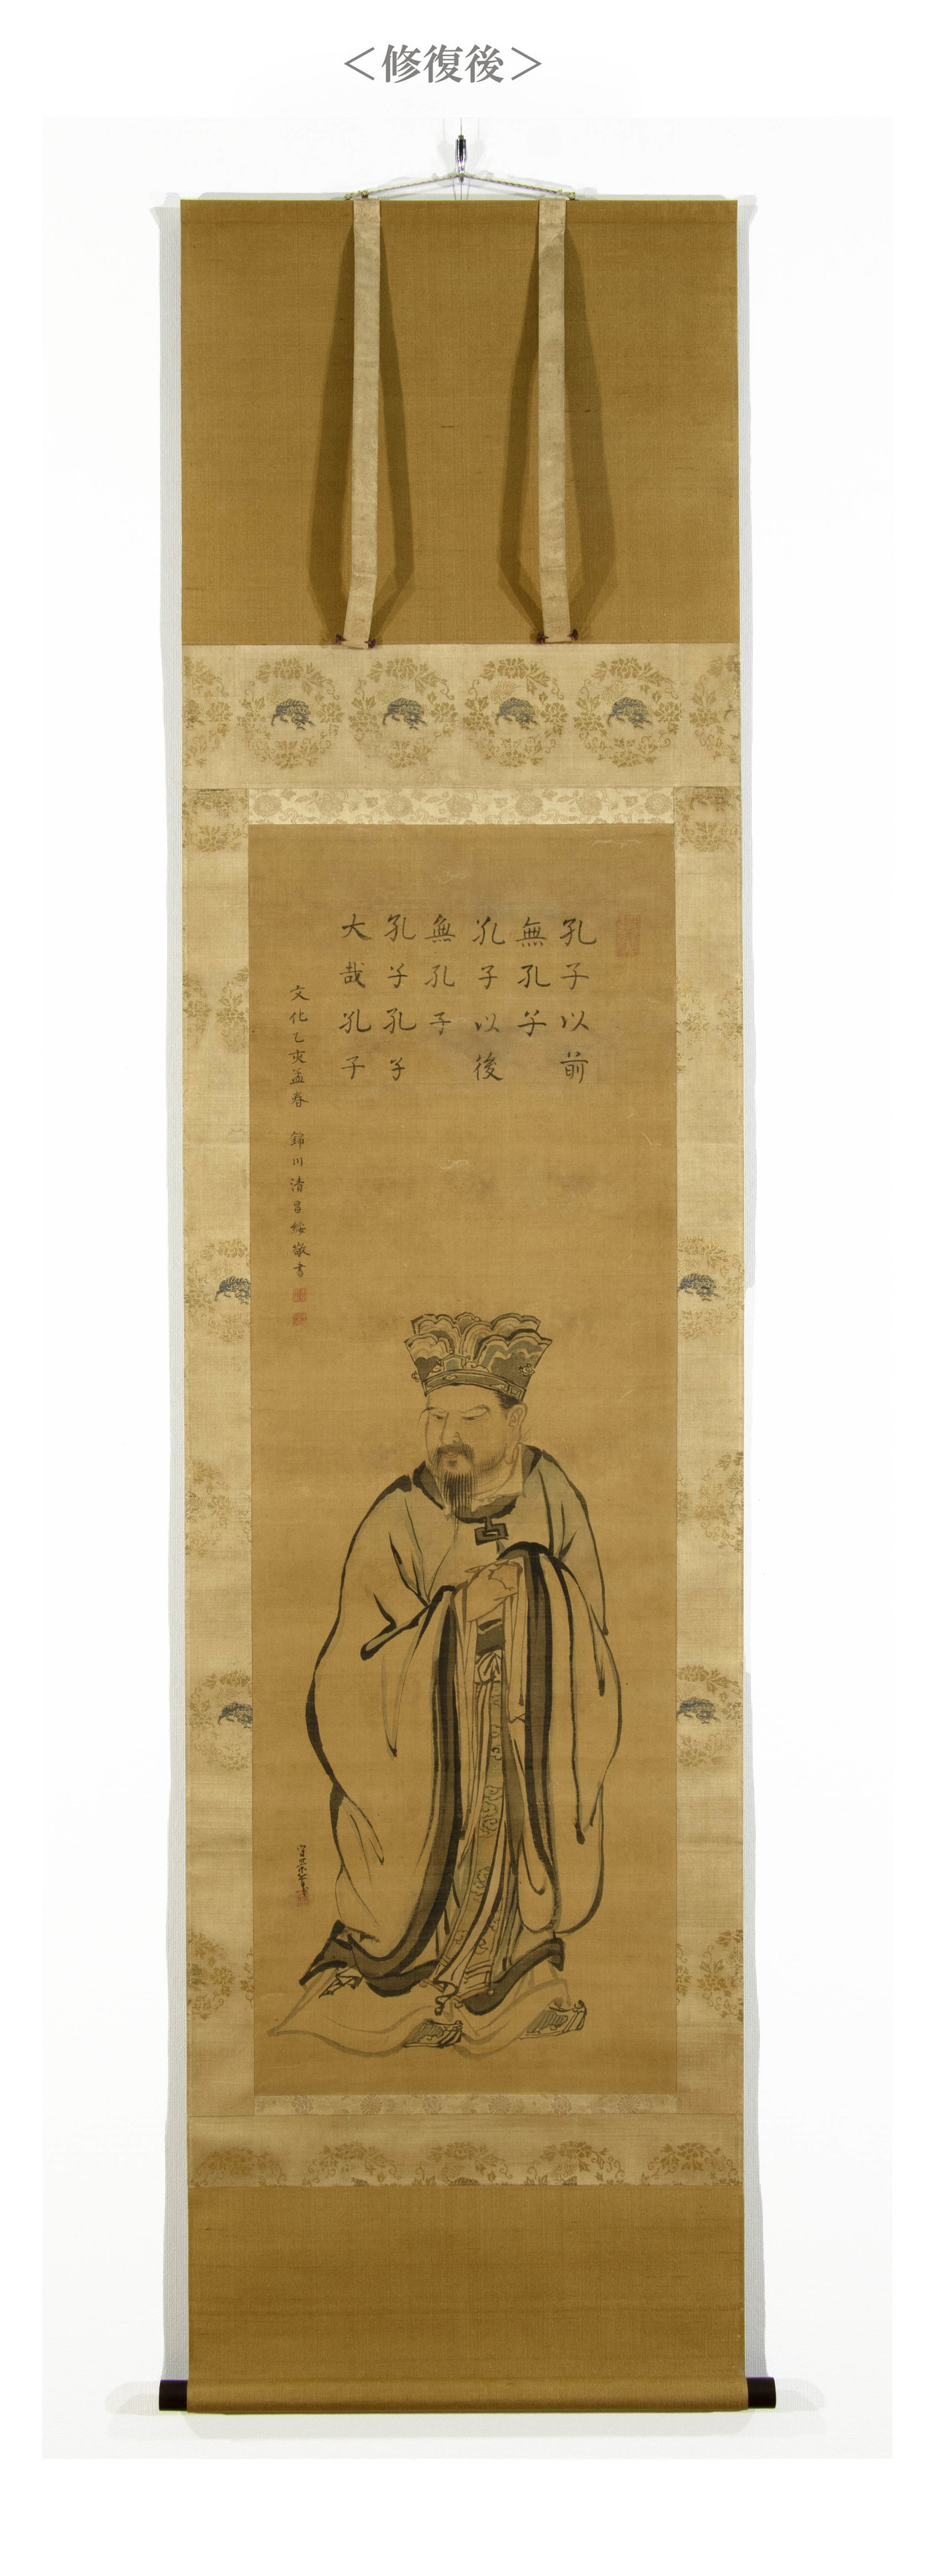 <修復後>
孔子以前
無孔子
孔子以後
無孔子
孔子孔子
大哉孔子
文化乙亥孟春 錦川清昌綏敬書